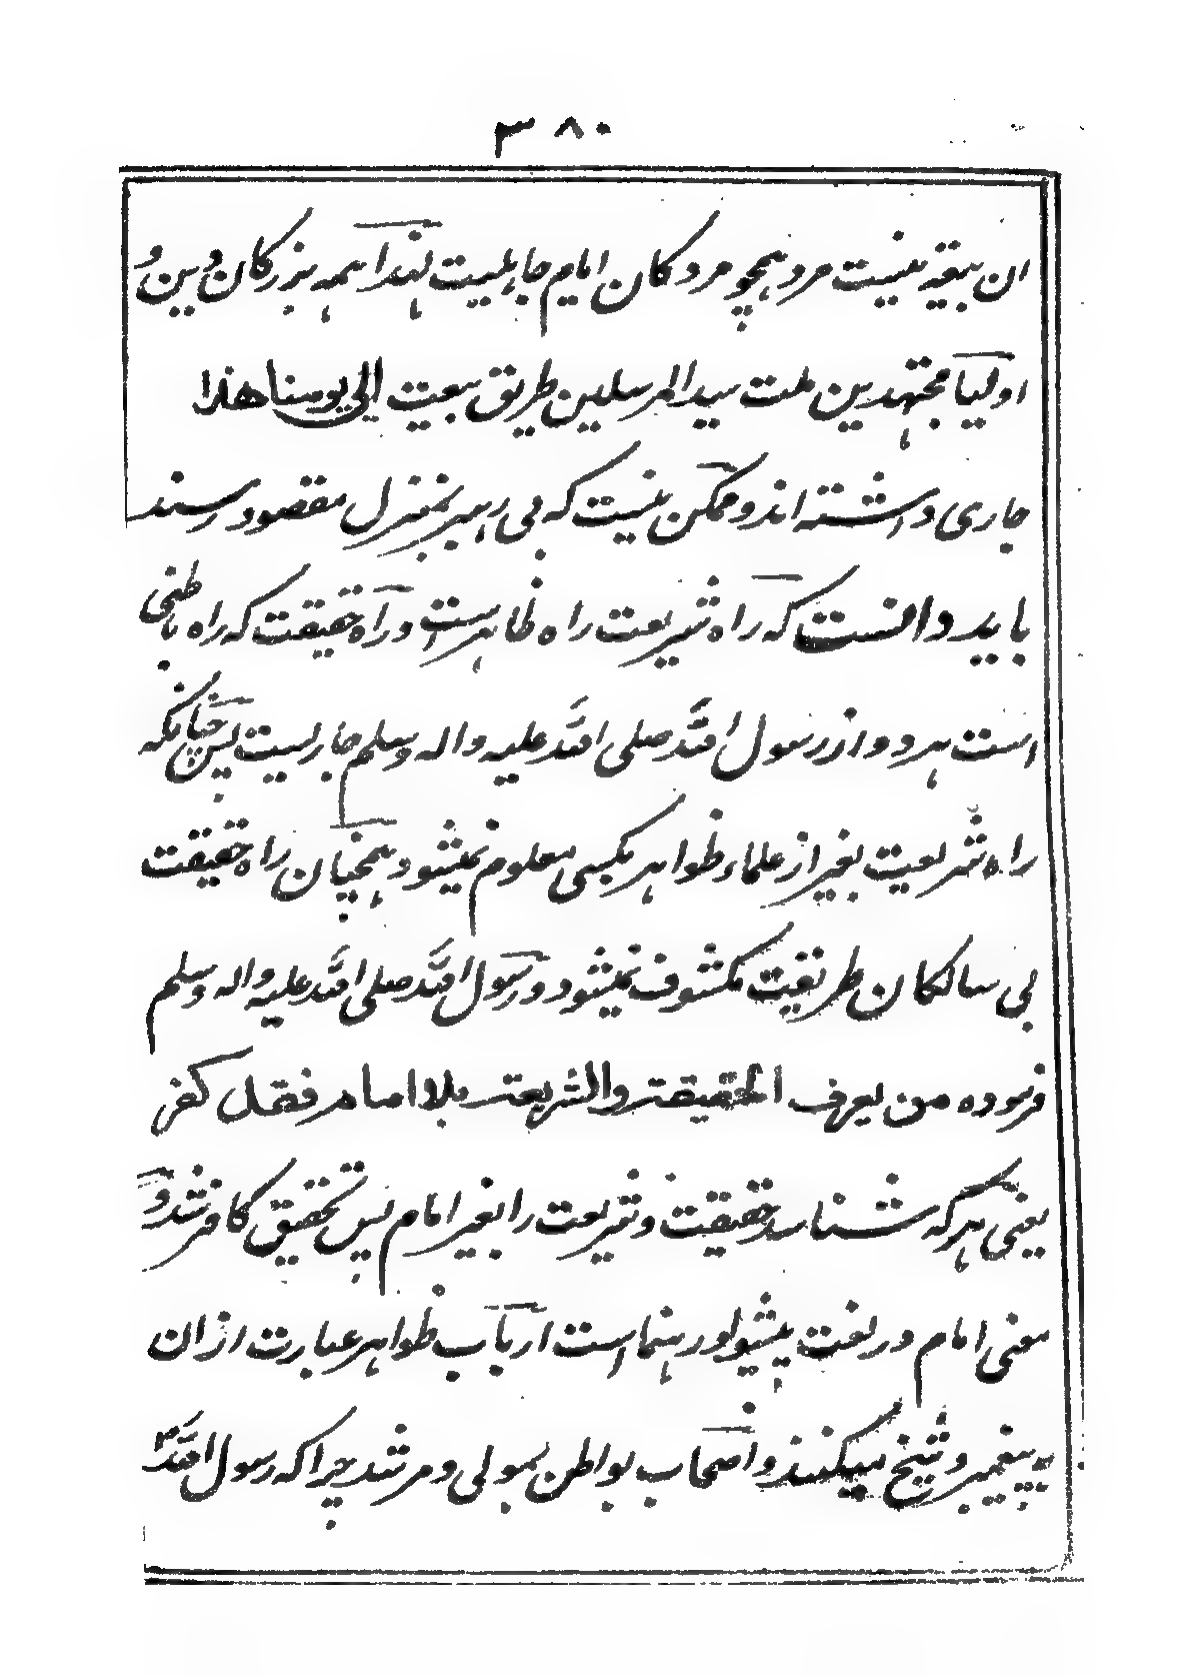 ۳۸۰
ان بیعة نیست مرد همچو مردکان ایام جاهلیت لهندا همه بزرکان دین و
اولیا مجتهدین ملت سید المرسلین طریق بیعت الی یومنا هذا
جاری داشته اند و ممکن نیست که بی رهبر بمنزل مقصود رسند
باید دانست که راه شریعت راه ظاهرست و راه حقیقت که راه باطنی
است هر دو از رسول الله صلی الله علیه واله وسلم جاریست پس چنانکه
راه شریعت بغیر از علماء ظواهر بکسی معلوم نمیشود همچنان راه حقیقت
بی سالکان طریقت مکشوف نمیشود و رسول الله صلی الله علیه واله وسلم
فرموده من یعرف الحقیقة والشریعة بلا امام فقد کفر
یعنی هرکه شناسد حقیقت و شریعت را بغیر امام پس تحقیق کافر شد و
معنی امام در لغت پیشوا و رهنما است ارباب ظواهر عبارت ازان
به پیغمبر و شیخ میکنند و اصحاب بواطن بمولی و مرشد چرا که رسول الله ص